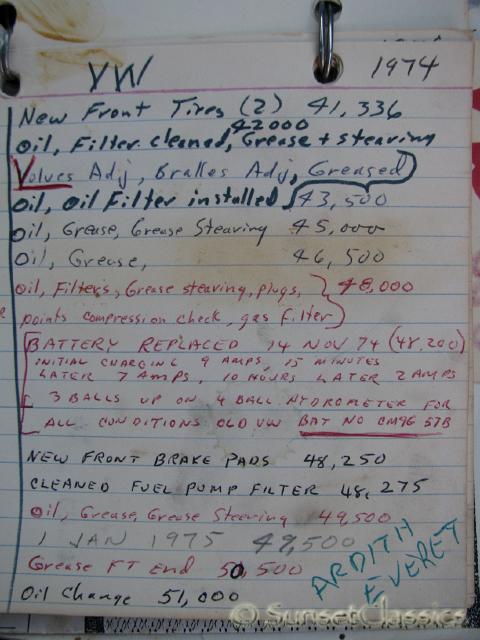 VW 1974
New Front Tires (2) 41,336
42000
Oil, Filter cleaned, Grease + stearing
Valves Adj, Brakes Adj, Greased
Oil, Oil Filter installed 43,500
Oil, Grease, Grease Stearing 45,000
Oil, Grease, 46,500
Oil, Filters, Grease stearing, plugs, 48,000
points compression check, gas filter
BATTERY REPLACED 14 NOV 74 (48,200)
INITIAL CHARGING 9 AMPS, 15 MINUTES
LATER 7 AMPS, 10 HOURS LATER 2 AMPS
3 BALLS UP ON 4 BALL HYDROMETER FOR
ALL CONDITIONS OLD VW BAT NO CM96 57B
NEW FRONT BRAKE PADS 48,250
CLEANED FUEL PUMP FILTER 48,275
Oil, Grease, Grease Steering 49,500
1 JAN 1975 49,500
Grease FT End 50,500
Oil Change 51,000
ARDITH
EVERET
© SunsetClassics